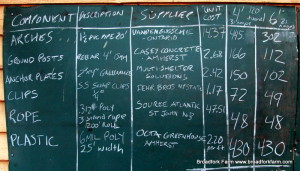 COMPONENT DESCRIPTION SUPPLIER UNIT COST 20'
ARCHES 20' VANDENBUSSCHE - ONTARIO 14.37 302
GROUND POSTS REBAR CASEY CONCRETE - AMHERST 2.68 166 112
ANCHOR PLATES GALVANIZED MULTI SHELTER SOLUTIONS 2.42 150 102
CLIPS SS SNAP CLIPS 1.17 72 49
ROPE POLY 3 STRAND ROPE 200' ROLL SOURCE ATLANTIC ST JOHN NB 47.50 48 48
PLASTIC 6 MIL POLY 25' WIDTH GREENHOUSE AMHERST 2.20 430 430
Broadfork Farm www.broadforkfarm.com